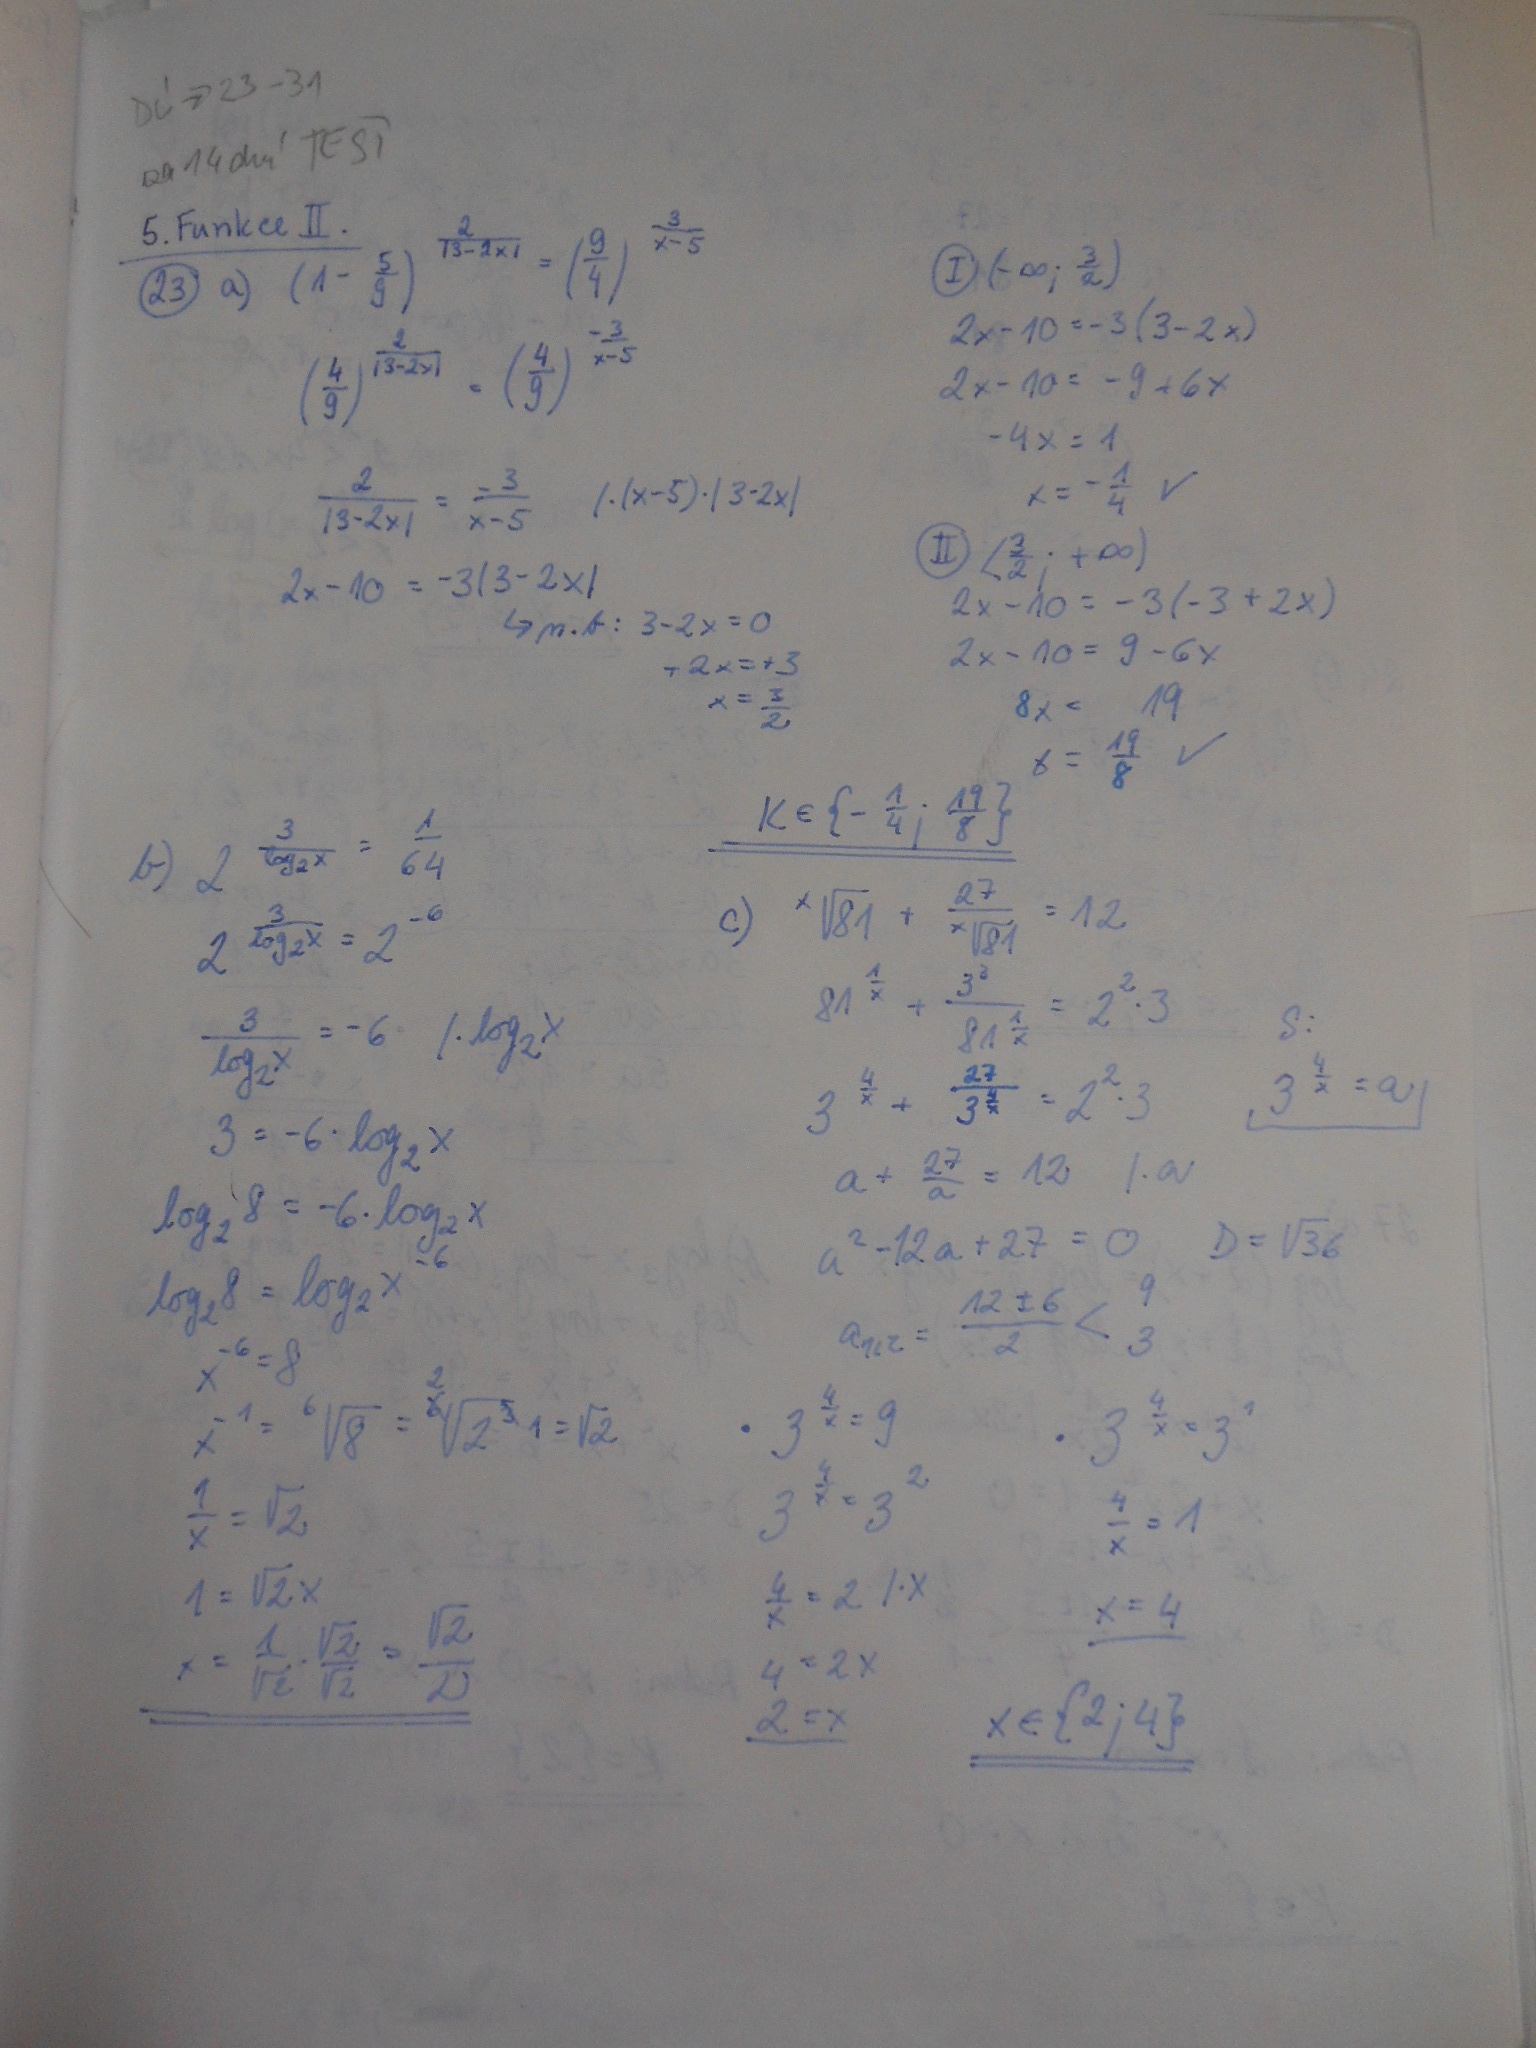 DÚ → 23-31
za 14 dní TEST
5. Funkce II.
23 a) (1 - 5/9)^(2/|3-2x|) = (9/4)^(3/(x-5))
(4/9)^(2/|3-2x|) = (4/9)^(-3/(x-5))
2/|3-2x| = -3/(x-5) /·(x-5)·|3-2x|
2x-10 = -3|3-2x|
↳ n.b: 3-2x=0
+2x=+3
x = 3/2
I (-∞; 3/2)
2x-10=-3(3-2x)
2x-10= -9+6x
-4x = 1
x = -1/4 ✓
II <3/2; +∞)
2x-10= -3(-3+2x)
2x-10= 9-6x
8x = 19
x = 19/8 ✓
K ∈ {-1/4; 19/8}
b) 2^(3/log₂x) = 1/64
2^(3/log₂x) = 2^-6
3/log₂x = -6 /·log₂x
3 = -6·log₂x
log₂8 = -6·log₂x
log₂8 = log₂x^-6
x^-6 = 8
x^-1 = ⁶√8 = ⁶√2³ = √2
1/x = √2
1 = √2 x
x = 1/√2 · √2/√2 = √2/2
c) ˣ√81 + 27/ˣ√81 = 12
81^(1/x) + 3³/81^(1/x) = 2²·3
3^(4/x) + 27/3^(4/x) = 2²·3
S:
3^(4/x) = a
a + 27/a = 12 /·a
a² -12a + 27 = 0 D = √36
a₁,₂ = (12 ± 6)/2 < 9
3
• 3^(4/x) = 9
3^(4/x) = 3²
4/x = 2 /·x
4 = 2x
2 = x
• 3^(4/x) = 3¹
4/x = 1
x = 4
x ∈ {2; 4}